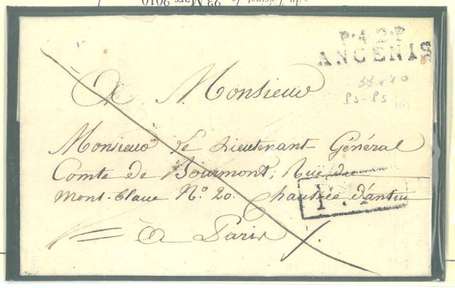 23 Mars 2010
P.42.P
ANCENIS
A Monsieur
Monsieur le Lieutenant Général
Comte de Bourmont, Rue du
Mont-Blanc N.º 20. Chaussée d'antin
A Paris